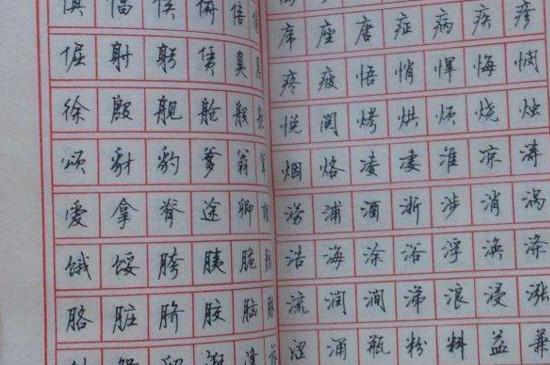 候 倍
倔 射 躬 赁 臭
徐 殷 舰 舱 般
颂 豺 豹 爹 翁
爱 拿 脊 途 卿
饿 馁 胯 胰 脆
胳 脏 脐 胶 脑
席 座 唐 症 病 疾 疹
疼 疲 悟 悄 悍 悔 悯
悦 阅 烤 烘 烦 烧 烛
烟 烙 凌 凄 准 凉 涛
涝 浦 酒 浙 涉 消 涡
浩 海 涂 浴 浮 涣 涤
流 润 涧 涕 浪 浸 涨
涩 涌 瓶 粉 料 益 兼